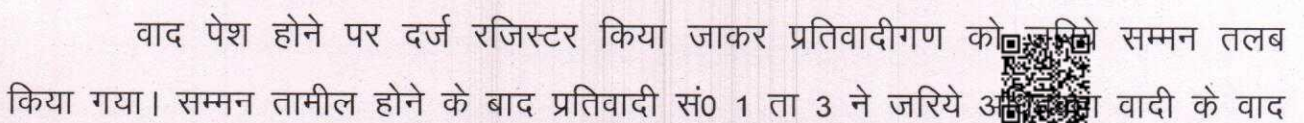 वाद पेश होने पर दर्ज रजिस्टर किया जाकर प्रतिवादीगण को सम्मन तलब
किया गया। सम्मन तामील होने के बाद प्रतिवादी सं0 1 ता 3 ने जरिये वादी के वाद